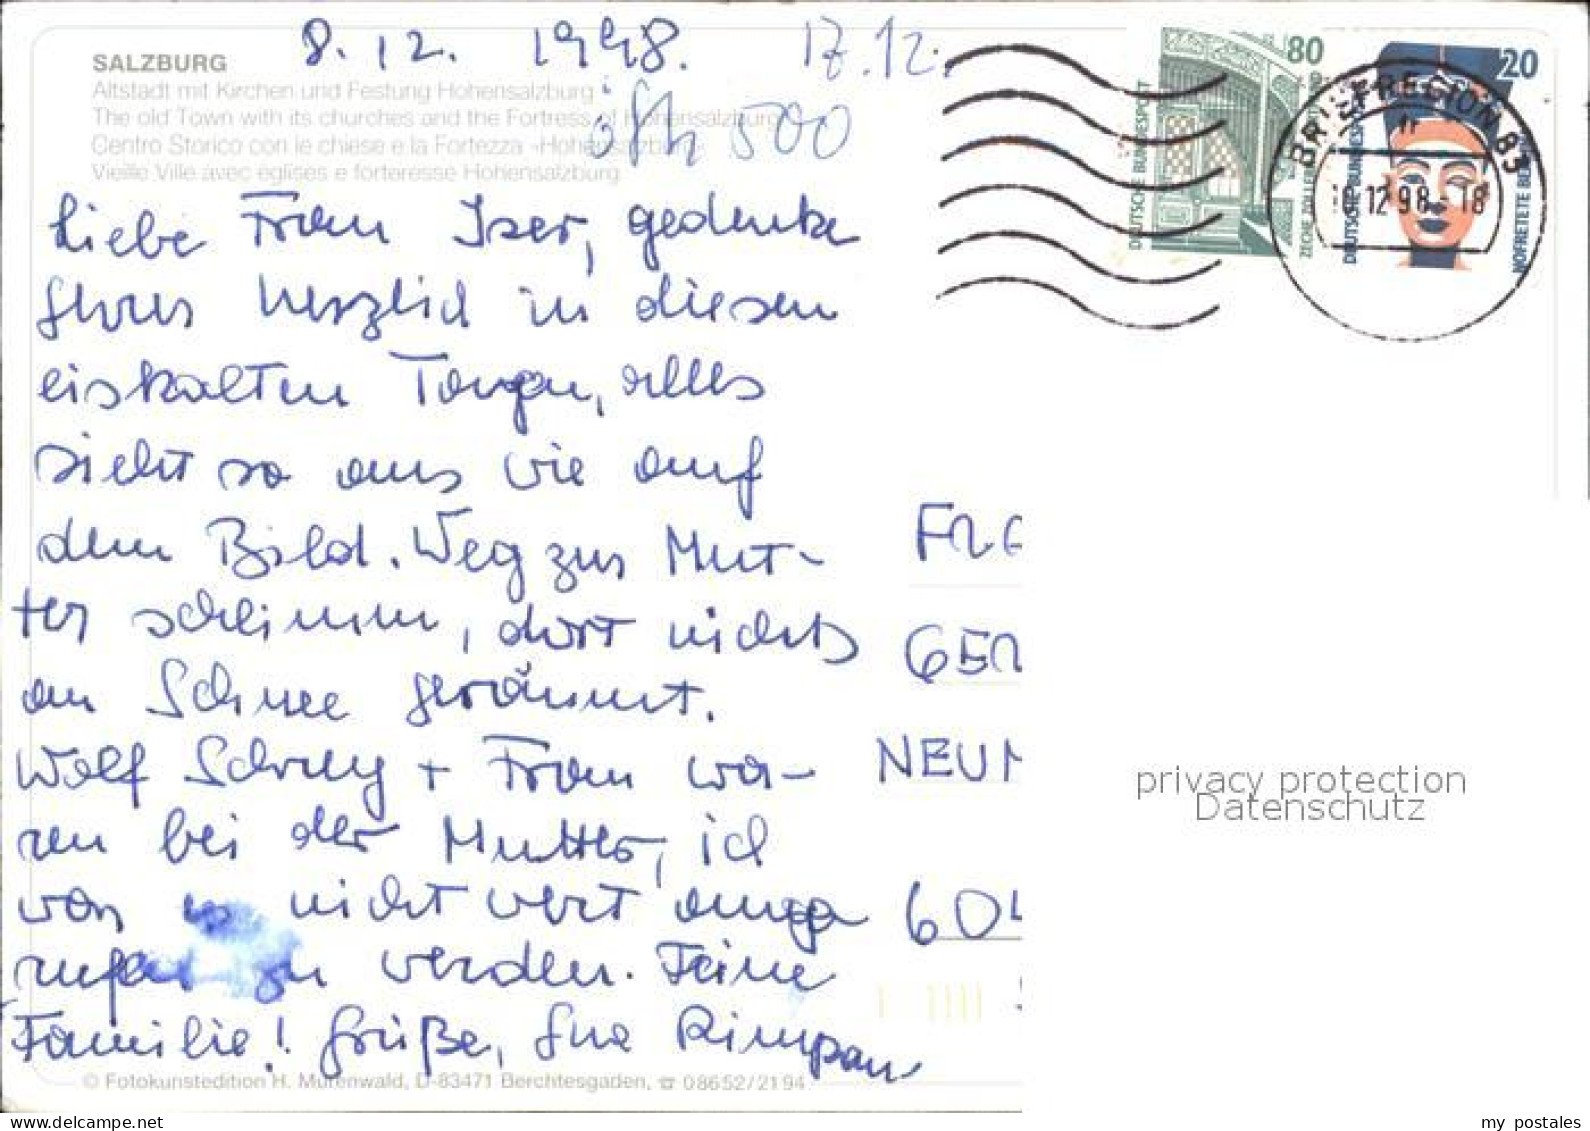 8. 12. 1998. 17.12.
SALZBURG
Altstadt mit Kirchen und Festung Hohensalzburg
The old Town with its churches and the Fortress of Hohensalzburg
Centro Storico con le chiese e la Fortezza »Hohensalzburg«
Vieille Ville avec eglises e forteresse Hohensalzburg
öSh 500
Liebe Frau Iser, gedenke
Ihrer herzlich in diesen
eiskalten Tagen, alles
sieht so aus wie auf
dem Bild. Weg zur Mut-
ter schlimm, dort nichts
an Schnee geräumt.
Wolf + Frau wa-
ren bei der Mutter, ich
war es nicht wert ange
rufen zu werden. Feine
Familie! Grüße,
© Fotokunstedition H. Mürenwald, D-83471 Berchtesgaden, ☎ 08652/2194
80
DEUTSCHE BUNDESPOST
20
DEUTSCHE BUNDESPOST
NOFRETETE
BRIEFREGION 83
12.98-18
NEU
privacy protection
Datenschutz
my postales